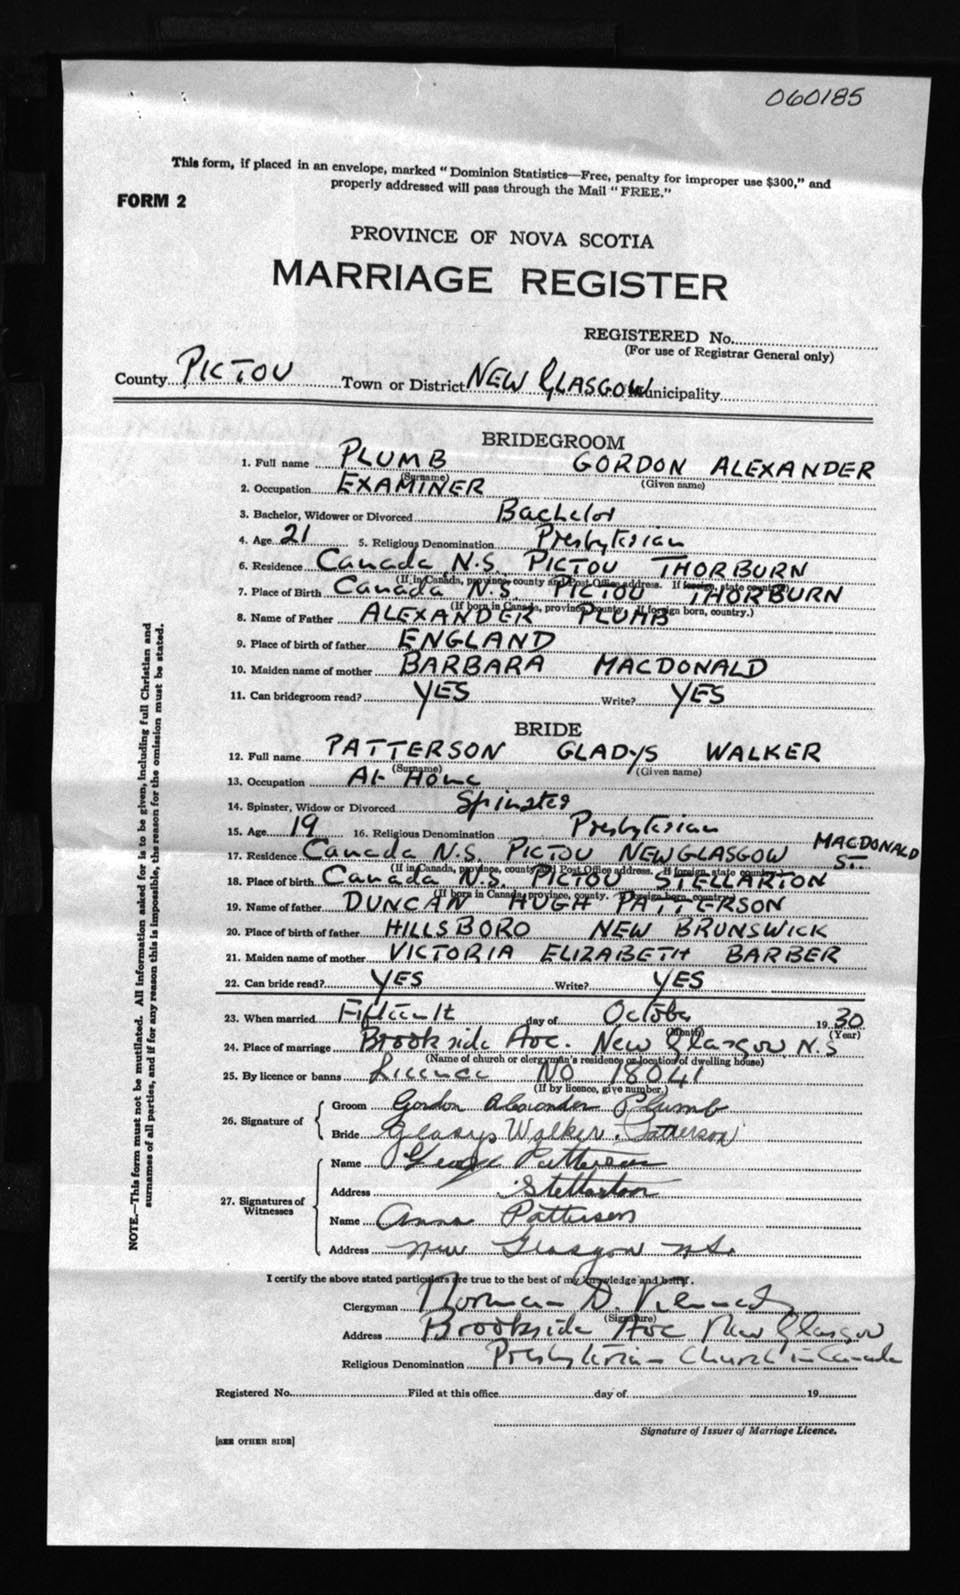 060185
This form, if placed in an envelope, marked "Dominion Statistics—Free, penalty for improper use $300," and
properly addressed will pass through the Mail "FREE."
FORM 2
PROVINCE OF NOVA SCOTIA
MARRIAGE REGISTER
REGISTERED No.
(For use of Registrar General only)
County PICTOU Town or District NEW GLASGOW Municipality
BRIDEGROOM
1. Full name PLUMB GORDON ALEXANDER
(Surname) (Given name)
2. Occupation EXAMINER
3. Bachelor, Widower or Divorced Bachelor
4. Age 21 5. Religious Denomination Presbyterian
6. Residence Canada N.S. PICTOU THORBURN
(If in Canada, province, county and Post Office address. If foreign, state country.)
7. Place of Birth Canada N.S. PICTOU THORBURN
(If born in Canada, province, county. If foreign born, country.)
8. Name of Father ALEXANDER PLUMB
9. Place of birth of father ENGLAND
10. Maiden name of mother BARBARA MACDONALD
11. Can bridegroom read? YES Write? YES
BRIDE
12. Full name PATTERSON GLADYS WALKER
(Surname) (Given name)
13. Occupation At Home
14. Spinster, Widow or Divorced Spinster
15. Age 19 16. Religious Denomination Presbyterian
17. Residence Canada N.S. PICTOU NEW GLASGOW MACDONALD ST.
(If in Canada, province, county and Post Office address. If foreign, state country.)
18. Place of birth Canada N.S. PICTOU STELLARTON
(If born in Canada, province, county. If foreign born, country.)
19. Name of father DUNCAN HUGH PATTERSON
20. Place of birth of father HILLSBORO NEW BRUNSWICK
21. Maiden name of mother VICTORIA ELIZABETH BARBER
22. Can bride read? YES Write? YES
23. When married Fifteenth day of October 1930
(Month) (Year)
24. Place of marriage Brookside Ave. New Glasgow N.S
(Name of church or clergyman's residence or location of dwelling house)
25. By licence or banns Licence No 78041
(If by licence, give number.)
26. Signature of
Groom Gordon Alexander Plumb
Bride Gladys Walker Patterson
27. Signatures of Witnesses
Name George Patterson
Address Stellarton
Name Anna Patterson
Address New Glasgow N.S.
I certify the above stated particulars are true to the best of my knowledge and belief.
Clergyman Norman D. Kennedy
(Signature)
Address Brookside Ave New Glasgow
Religious Denomination Presbyterian Church in Canada
Registered No. Filed at this office day of 19
Signature of Issuer of Marriage Licence.
[SEE OTHER SIDE]
NOTE.—This form must not be mutilated. All information asked for is to be given, including full Christian and
surnames of all parties, and if for any reason this is impossible, the reason for the omission must be stated.